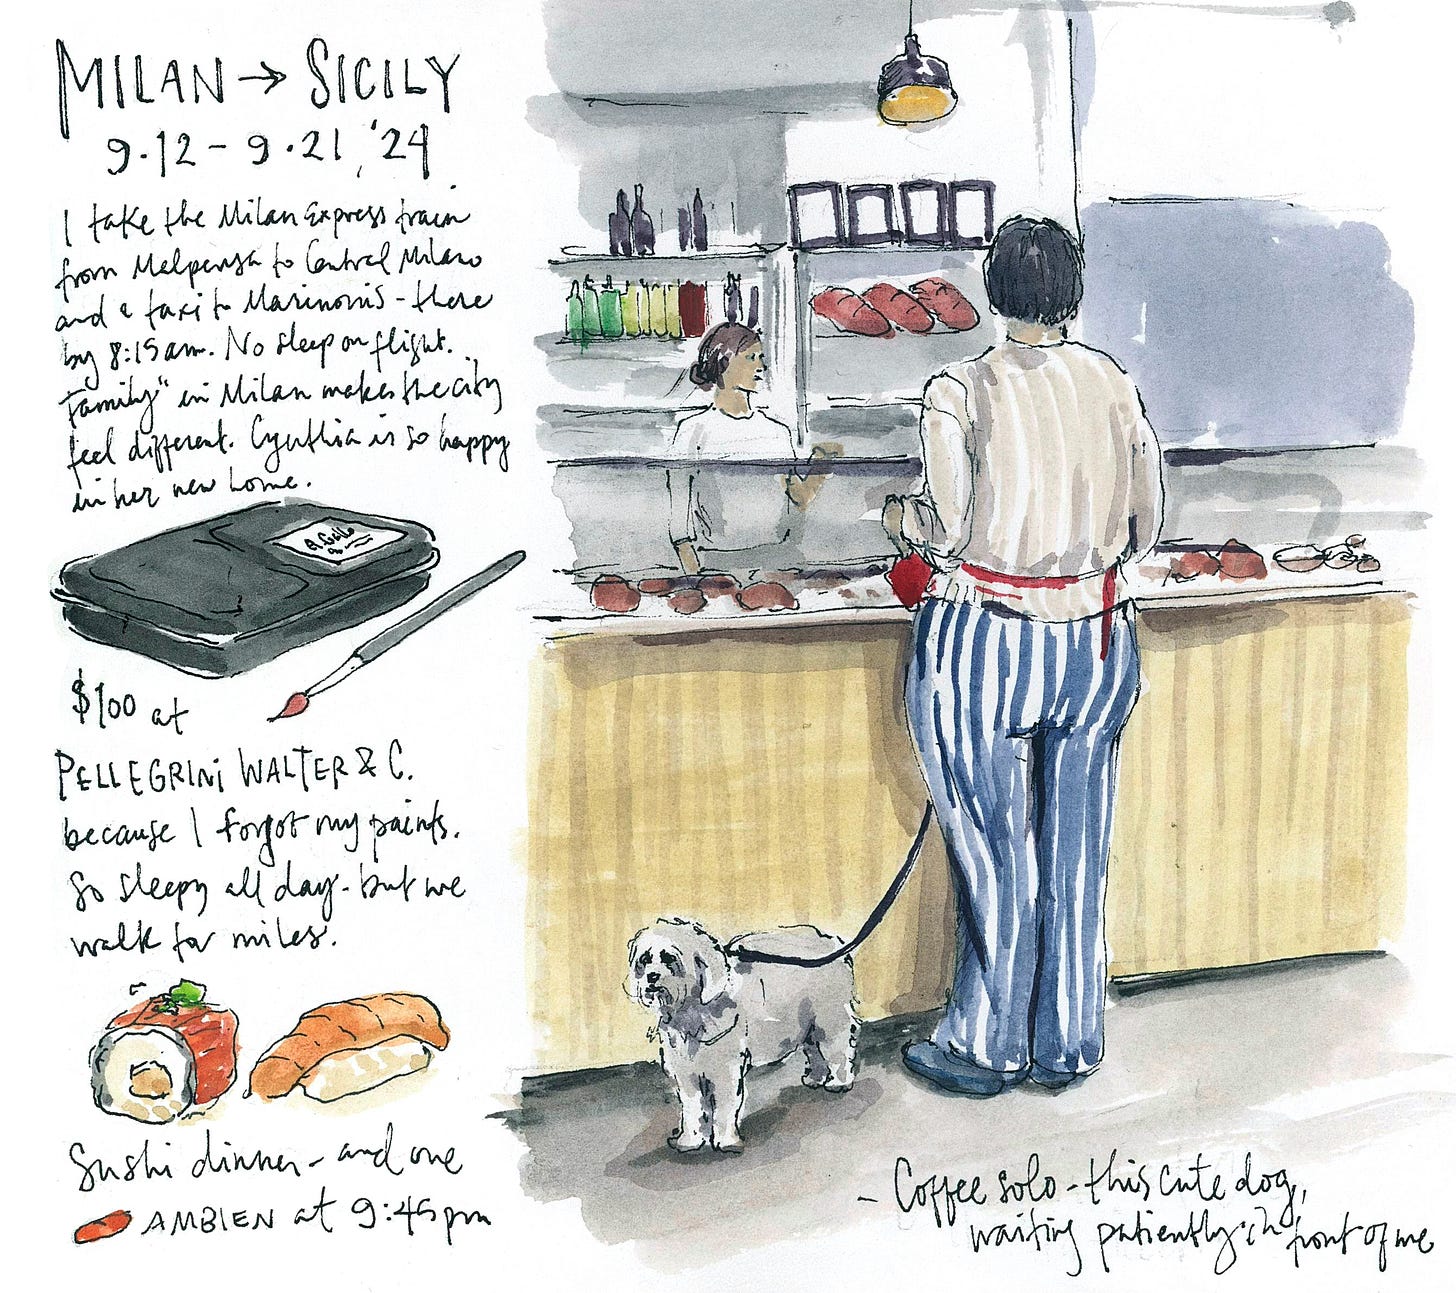 MILAN → SICILY
9.12 - 9.21, '24
I take the Milan Express train
from Malpensa to Central Milano
and a taxi to Marinoni's - there
by 8:15am. No sleep on flight.
"Family" in Milan makes the city
feel different. Cynthia is so happy
in her new home.
$100 at
PELLEGRINI WALTER & C.
because I forgot my paints.
So sleepy all day - but we
walk for miles.
Sushi dinner - and one
AMBIEN at 9:45pm
- Coffee solo - this cute dog,
waiting patiently in front of me